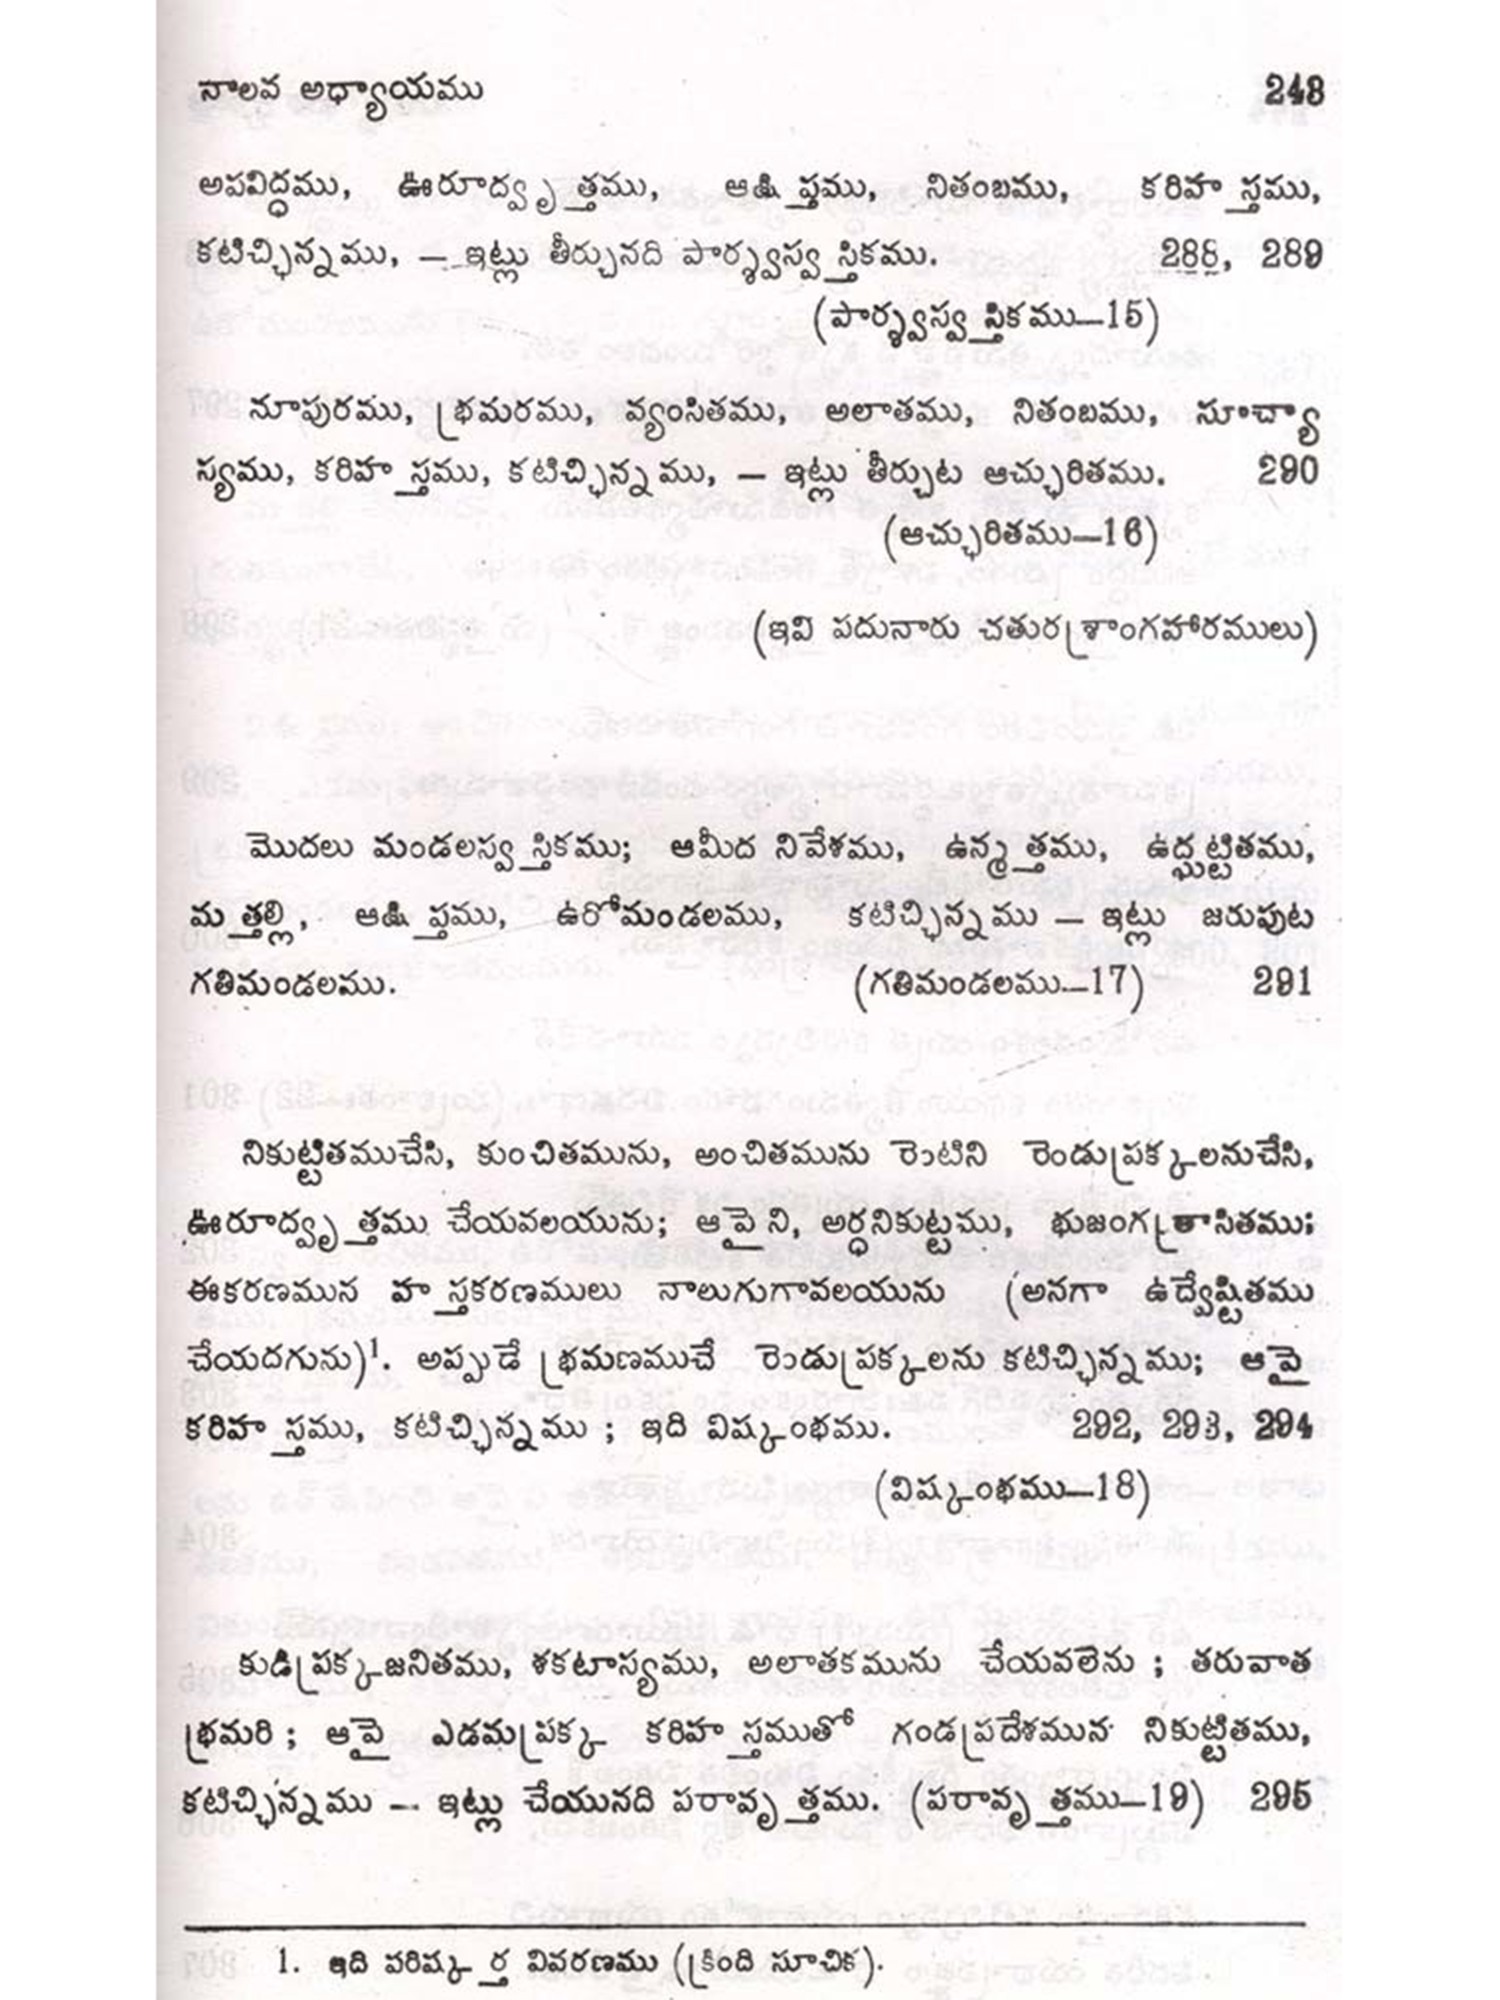 నాలవ అధ్యాయము 243
అపవిద్ధము, ఊరూద్వృత్తము, ఆక్షిప్తము, నితంబము, కరిహస్తము,
కటిచ్ఛిన్నము, — ఇట్లు తీర్చునది పార్శ్వస్వస్తికము. 288, 289
(పార్శ్వస్వస్తికము—15)
నూపురము, భ్రమరము, వ్యంసితము, అలాతము, నితంబము, సూచ్యా
స్యము, కరిహస్తము, కటిచ్ఛిన్నము, — ఇట్లు తీర్చుట ఆచ్ఛురితము. 290
(ఆచ్ఛురితము—16)
(ఇవి పదునారు చతురశ్రాంగహారములు)
మొదలు మండలస్వస్తికము; ఆమీద నివేశము, ఉన్మత్తము, ఉద్ఘట్టితము,
మత్తల్లి, ఆక్షిప్తము, ఉరోమండలము, కటిచ్ఛిన్నము — ఇట్లు జరుపుట
గతిమండలము. (గతిమండలము—17) 291
నికుట్టితముచేసి, కుంచితమును, అంచితమును రెంటిని రెండుప్రక్కలనుచేసి,
ఊరూద్వృత్తము చేయవలయును; ఆపైని, అర్ధనికుట్టము, భుజంగత్రాసితము;
ఈకరణమున హస్తకరణములు నాలుగుగావలయును (అనగా ఉద్వేష్టితము
చేయదగును)¹. అప్పుడే భ్రమణముచే రెండుప్రక్కలను కటిచ్ఛిన్నము; ఆపై
కరిహస్తము, కటిచ్ఛిన్నము ; ఇది విష్కంభము. 292, 293, 294
(విష్కంభము—18)
కుడిప్రక్కజనితము, శకటాస్యము, అలాతకమును చేయవలెను ; తరువాత
భ్రమరి ; ఆపై ఎడమప్రక్క కరిహస్తముతో గండప్రదేశమున నికుట్టితము,
కటిచ్ఛిన్నము — ఇట్లు చేయునది పరావృత్తము. (పరావృత్తము—19) 295
1. ఇది పరిష్కర్త వివరణము (క్రింది సూచిక).